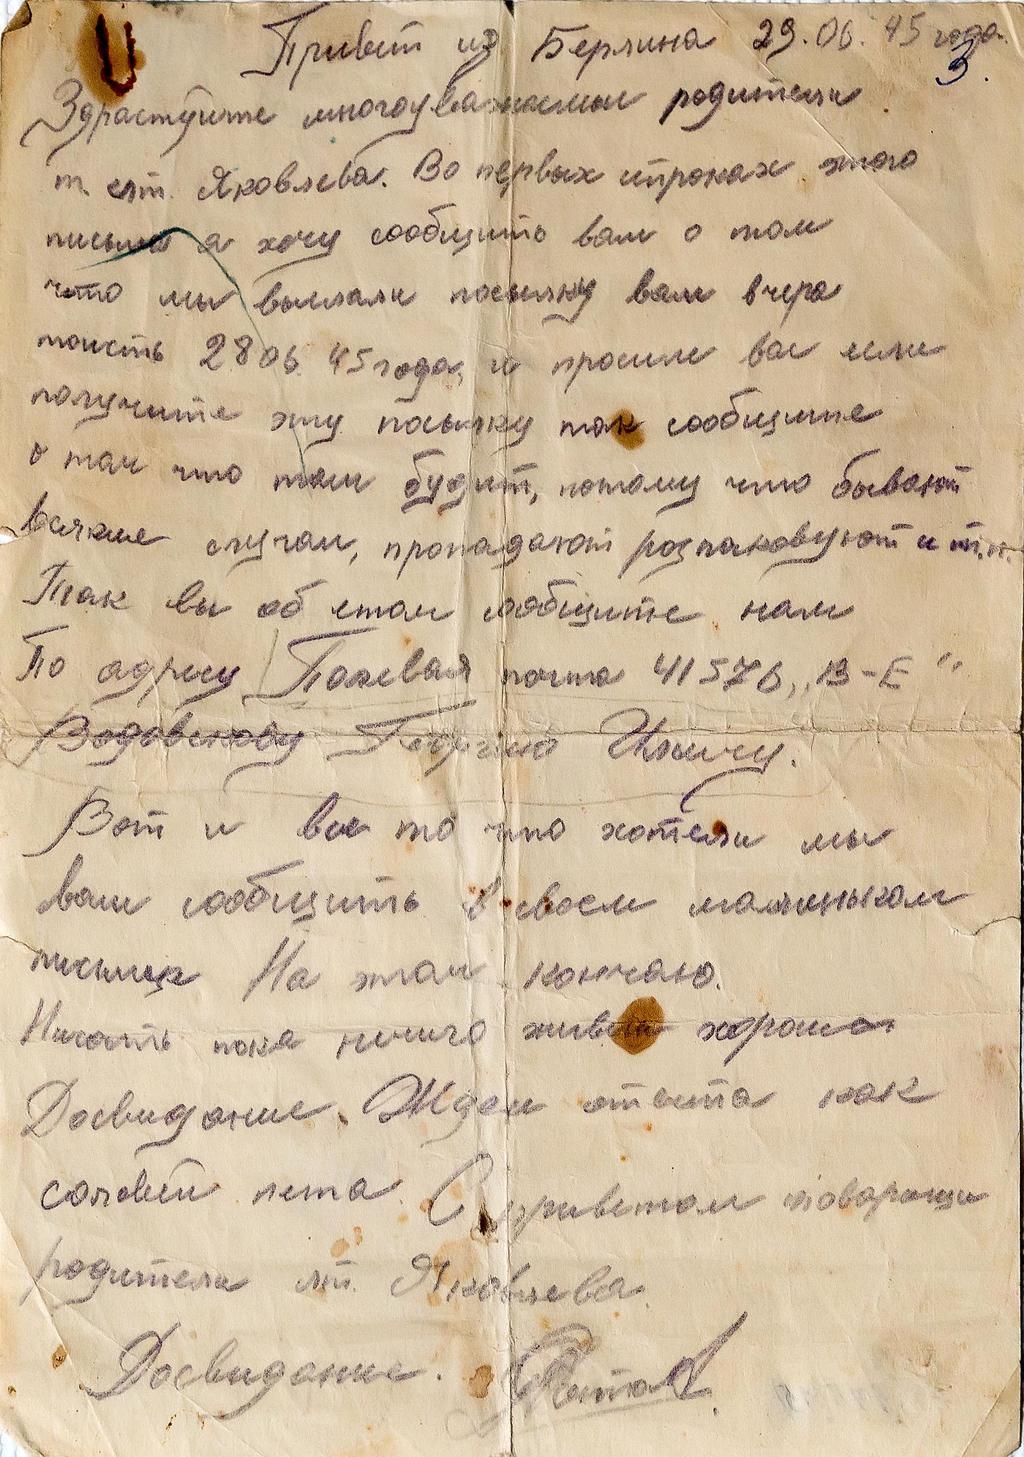 Привет из Берлина 29.06.45 года.
3.
Здрастуите многоуважаемыи родители
т. лт. Яковлева. Во первых строках этого
письма я хочу сообщить вам о том
что мы выслали посылку вам вчера
тоисть 28 06 45 года, и просим вас если
получите эту посылку так сообщите
о том что там будит, потому что бывают
всякие случаи, пропадают розпаковуют и т.п.
Так вы об етом сообщите нам
По адресу Полевая почта 41576 „В-Е"
Георгию Ильичу.
Вот и все то что хотели мы
вам сообщить в своем маленьком
письмце На этом кончаю.
Писать пока ничиго живем хорошо
Досвидание. Ждем ответа как
соловей лета С приветом товарищи
родители лт. Яковлева.
Досвидание.